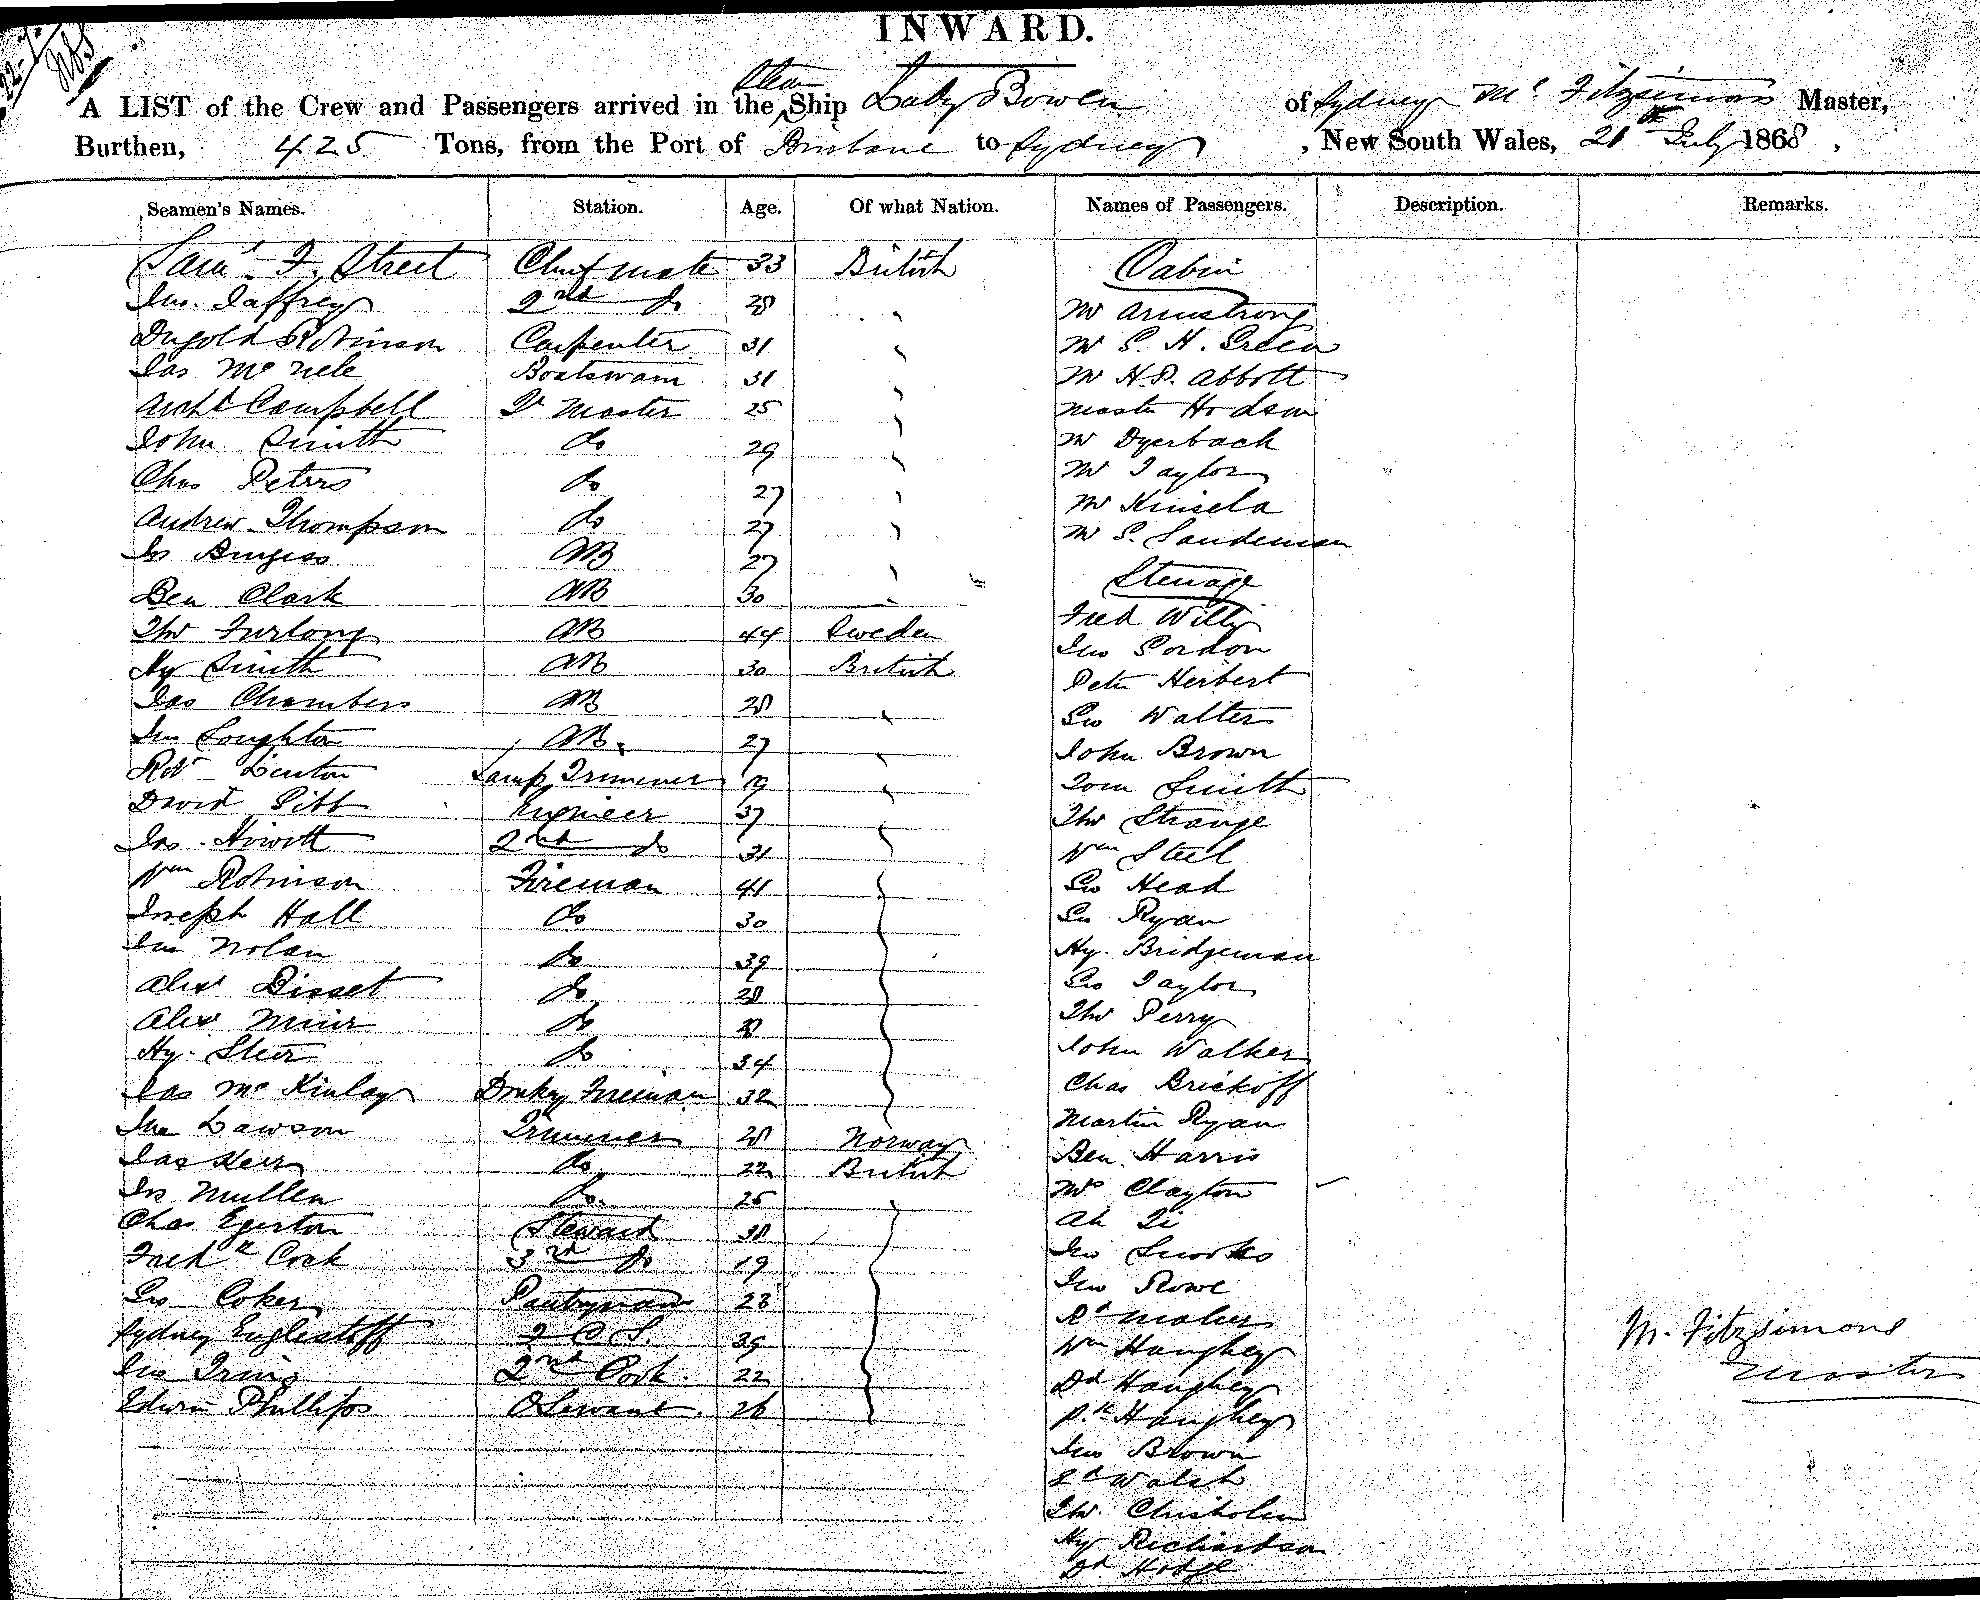 INWARD.
A LIST of the Crew and Passengers arrived in the Steam Ship Lady Bowen of Sydney Mc Fitzsimons Master,
Burthen, 425 Tons, from the Port of Brisbane to Sydney, New South Wales, 21st July 1868,
Seamen's Names. Station. Age. Of what Nation. Names of Passengers. Description. Remarks.
Saml F. Street Chief mate 33 British Cabin
Jno. Jaffrey 2nd do 28 " Mr Armstrong
Dugold Robinson Carpenter 31 " Mr G. H. Green
Jas McNele Boatswain 31 " Mr H.P. Abbott
Archd Campbell Qr Master 25 " Master Hodson
John Smith do 29 " Mr Dyerback
Chas Peters do 27 " Mr Taylor
Andrew Thompson do 27 " Mr Kinsela
Js Burgess AB 27 " Mr G. Sandeman
Ben Clark AB 30 " Steerage
Thos Furlong AB 44 Sweden Fred Willy
Hy Smith AB 30 British Jno Gordon
Jas Chambers AB 28 " Peter Herbert
Jno Loughton AB. 27 " Geo Walter
Robt Linton Lamp Trimmer 19 " John Brown
David Pitt Engineer 37 Tom Smith
Jas. Howitt 2nd do 31 Thos Strange
Wm Robinson Fireman 41 Wm Steel
Joseph Hall do 30 Geo Head
Jno Nolan do 39 Geo Ryan
Alexr Disset do 28 Hy. Bridgeman
Alexr Muir do 28 Geo Taylor
Hy. Steer do 34 Thos Perry
Jas McKinlay Donky Fireman 32 John Walker
Jno Lawson Trimmer 28 Norway Chas Brickoff
Jas Kerr do 22 British Martin Ryan
Js Mullen do 25 Ben Harris
Chas Egerton Steward 38 Mrs Clayton
Fredk Cook 3rd do 19 Ah
Geo Coker Pantryman 28 Jno Snooks
Sydney Euglestoff 2 C S. 39 Jno Rowe
Jno Irving 2nd Cook 22 Rd Maher
Edwin Phillips 26 Wm Haughey
Dd Haughey
P.k Haughey
Jno Brown
Ed Walsh
Thos. Chisholm
Hy Richardson
Dd Hodge
M. Fitzsimons
Master